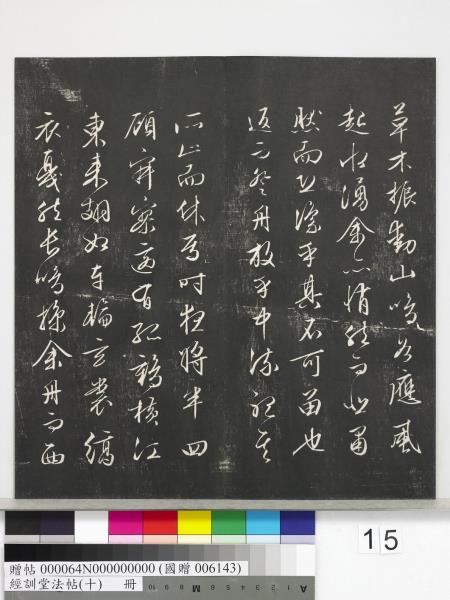 草木振動山鳴谷應風
起水湧余亦悄然而悲肅
然而恐凜乎其不可留也
返而登舟放乎中流聽其
所止而休焉時夜將半四
顧寂寥適有孤鶴橫江
東來翅如車輪玄裳縞
衣戛然長鳴掠余舟而西
15
贈帖 000064N000000000 (國贈 006143)
經訓堂法帖(十) 冊